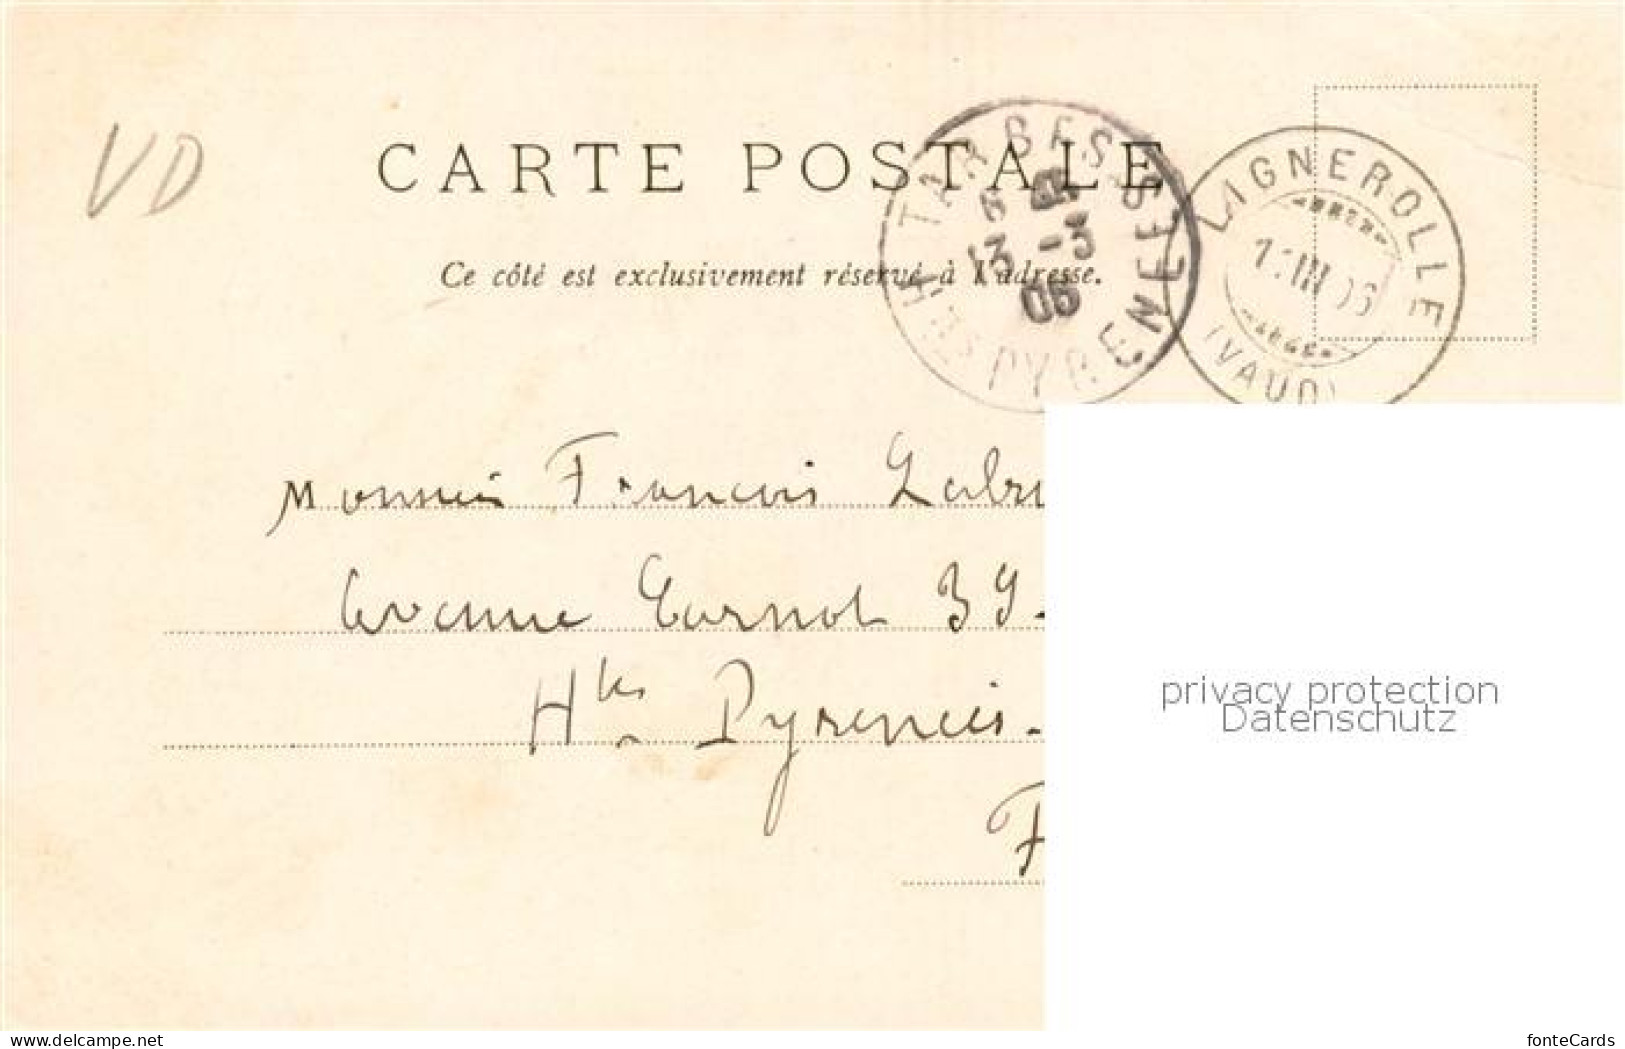 VD
CARTE POSTALE
Ce côté est exclusivement réservé à l'adresse.
TARBES
3
13 -3
06
HTES PYRENEES
LIGNEROLLE
III 06
(VAUD)
Monsieur François Labru
Avenue Carnot 39-
Htes Pyrenées-
F
privacy protection
Datenschutz
www.delcampe.net
fonteCards